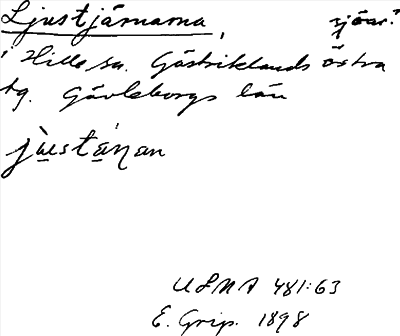 Ljustjärnarna, sjöar?
i Hille sn. Gästriklands östra
tg. Gävleborgs län
jùstánan
ULMA 481:63
E. Grip. 1898